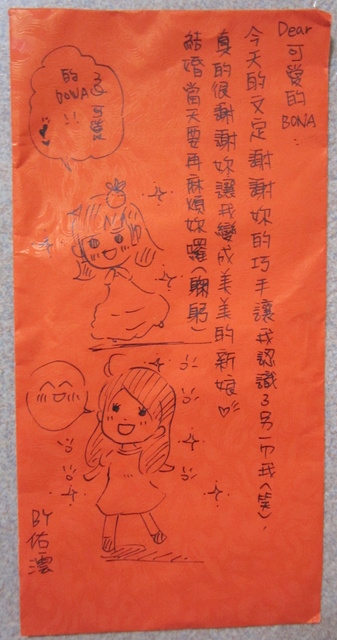 Dear 可愛的 BONA:
今天的文定謝謝妳的巧手讓我認識了另一个我(笑),
真的很謝謝妳讓我變成美美的新娘♡
結婚當天要再麻煩妳囉(鞠躬)
可愛
的 BONA
!!
BY 佑澐